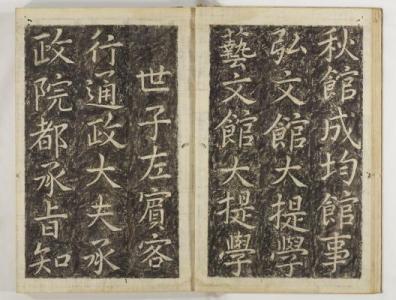 秋館成均館事
弘文館大提學
藝文館大提學
世子左賓客
行通政大夫承
政院都承旨知